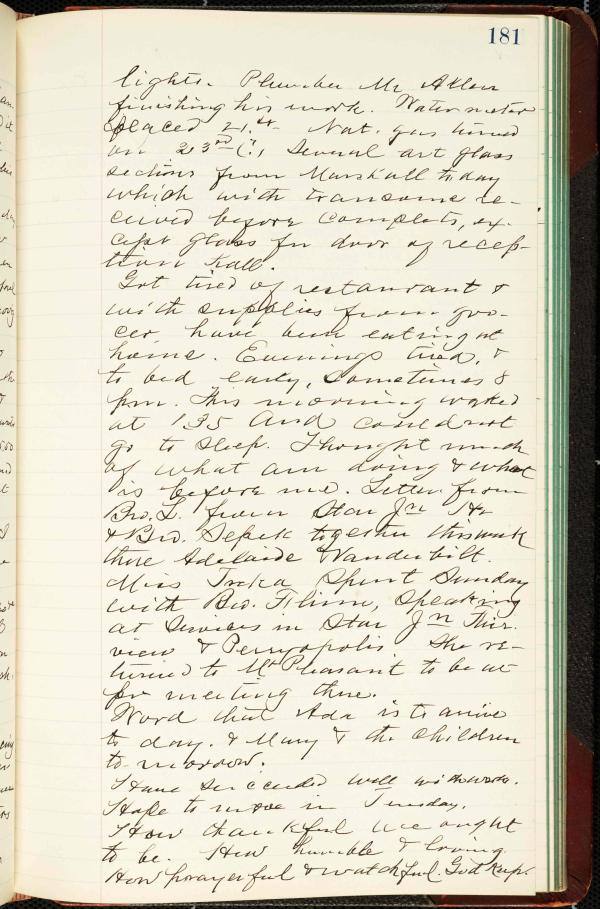 181
lights. Plumber Mr. Allen
finishing his work. Water meter
placed 21.st Nat. gas turned
on 23rd (?) Several art glass
sections from Marshall today
which with transoms re-
ceived before complete, ex-
cept glass for door of recep-
tion hall.
Got tired of restaurant &
with supplies from gro-
cer have been eating at
home. Evenings tired, &
to bed early, sometimes 8
pm. This morning waked
at 1.35 and could not
go to sleep. Thought much
of what am doing & what
is before me. Letter from
Bro. L. from Star Jn
& Bro. together this week
there Adelaide Vanderbilt.
Miss spent Sunday
with Bro. speaking
at Services in Star Jn
view & Perryopolis She re-
turned to Mt Pleasant to be at
meeting there.
Word that Ada is to arive
to day. & Mary & the children
to-morrow.
Have succeeded well with work.
Hope to move in Tuesday.
How thankful we ought
to be. How humble & loving
How prayerful & watchful. God keep.